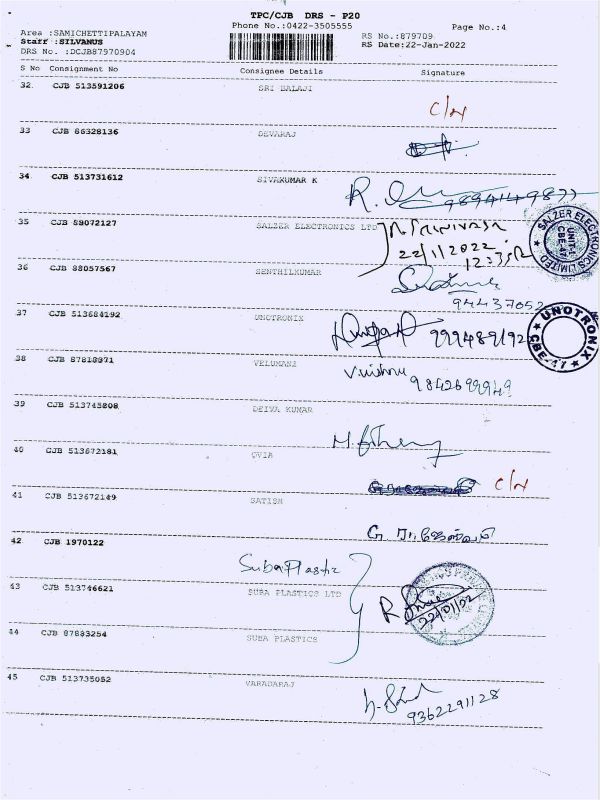 TPC/CJB DRS - P20
Phone No.:0422-3505555
Page No.:4
Area :SAMICHETTIPALAYAM
Staff :SILVANUS
DRS No. :DCJB87970904
RS No.:879709
RS Date:22-Jan-2022
S No Consignment No Consignee Details Signature
32. CJB 513591206 SRI BALAJI
C/N
33 CJB 86328136 DEVARAJ
34. CJB 513731612 SIVAKUMAR K
R. 9894149877
35 CJB 88072127 SALZER ELECTRONICS LTD
22/1/2022
SALZER ELECTRONICS LIMITED
UNIT
CBE-47
36 CJB 88057567 SENTHILKUMAR
94437052
37 CJB 513684192 UNOTRONIX
UNOTRONIX
CBE-47
38 CJB 87818971 VELUMANI
Vishnu
9842699949
39 CJB 513745808 DEIVA KUMAR
40 CJB 513672181 OVIA
C/N
41 CJB 513672149 SATISH
42. CJB 1970122
Suba Plastic
43 CJB 513746621 SUBA PLASTICS LTD
R
22/01/02
44 CJB 87883254 SUBA PLASTICS
45 CJB 513735052 VARADARAJ
9362291128